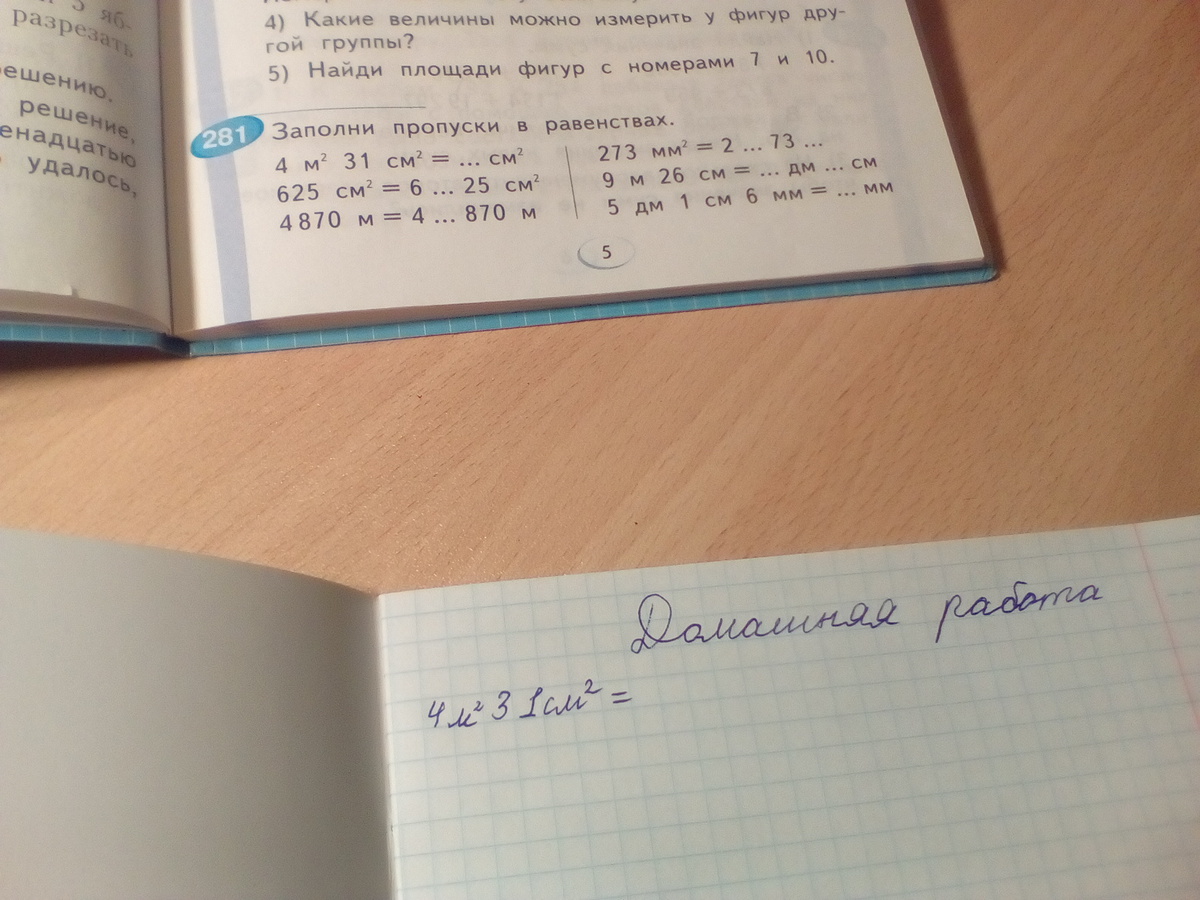 3 яб-
разрезать
решению.
решение,
удалось,
4) Какие величины можно измерить у фигур дру-
гой группы?
5) Найди площади фигур с номерами 7 и 10.
281 Заполни пропуски в равенствах.
4 м² 31 см² = ... см²
625 см² = 6 ... 25 см²
4870 м = 4 ... 870 м
273 мм² = 2 ... 73 ...
9 м 26 см = ... дм ... см
5 дм 1 см 6 мм = ... мм
5
Домашняя работа
4м² 31см² =